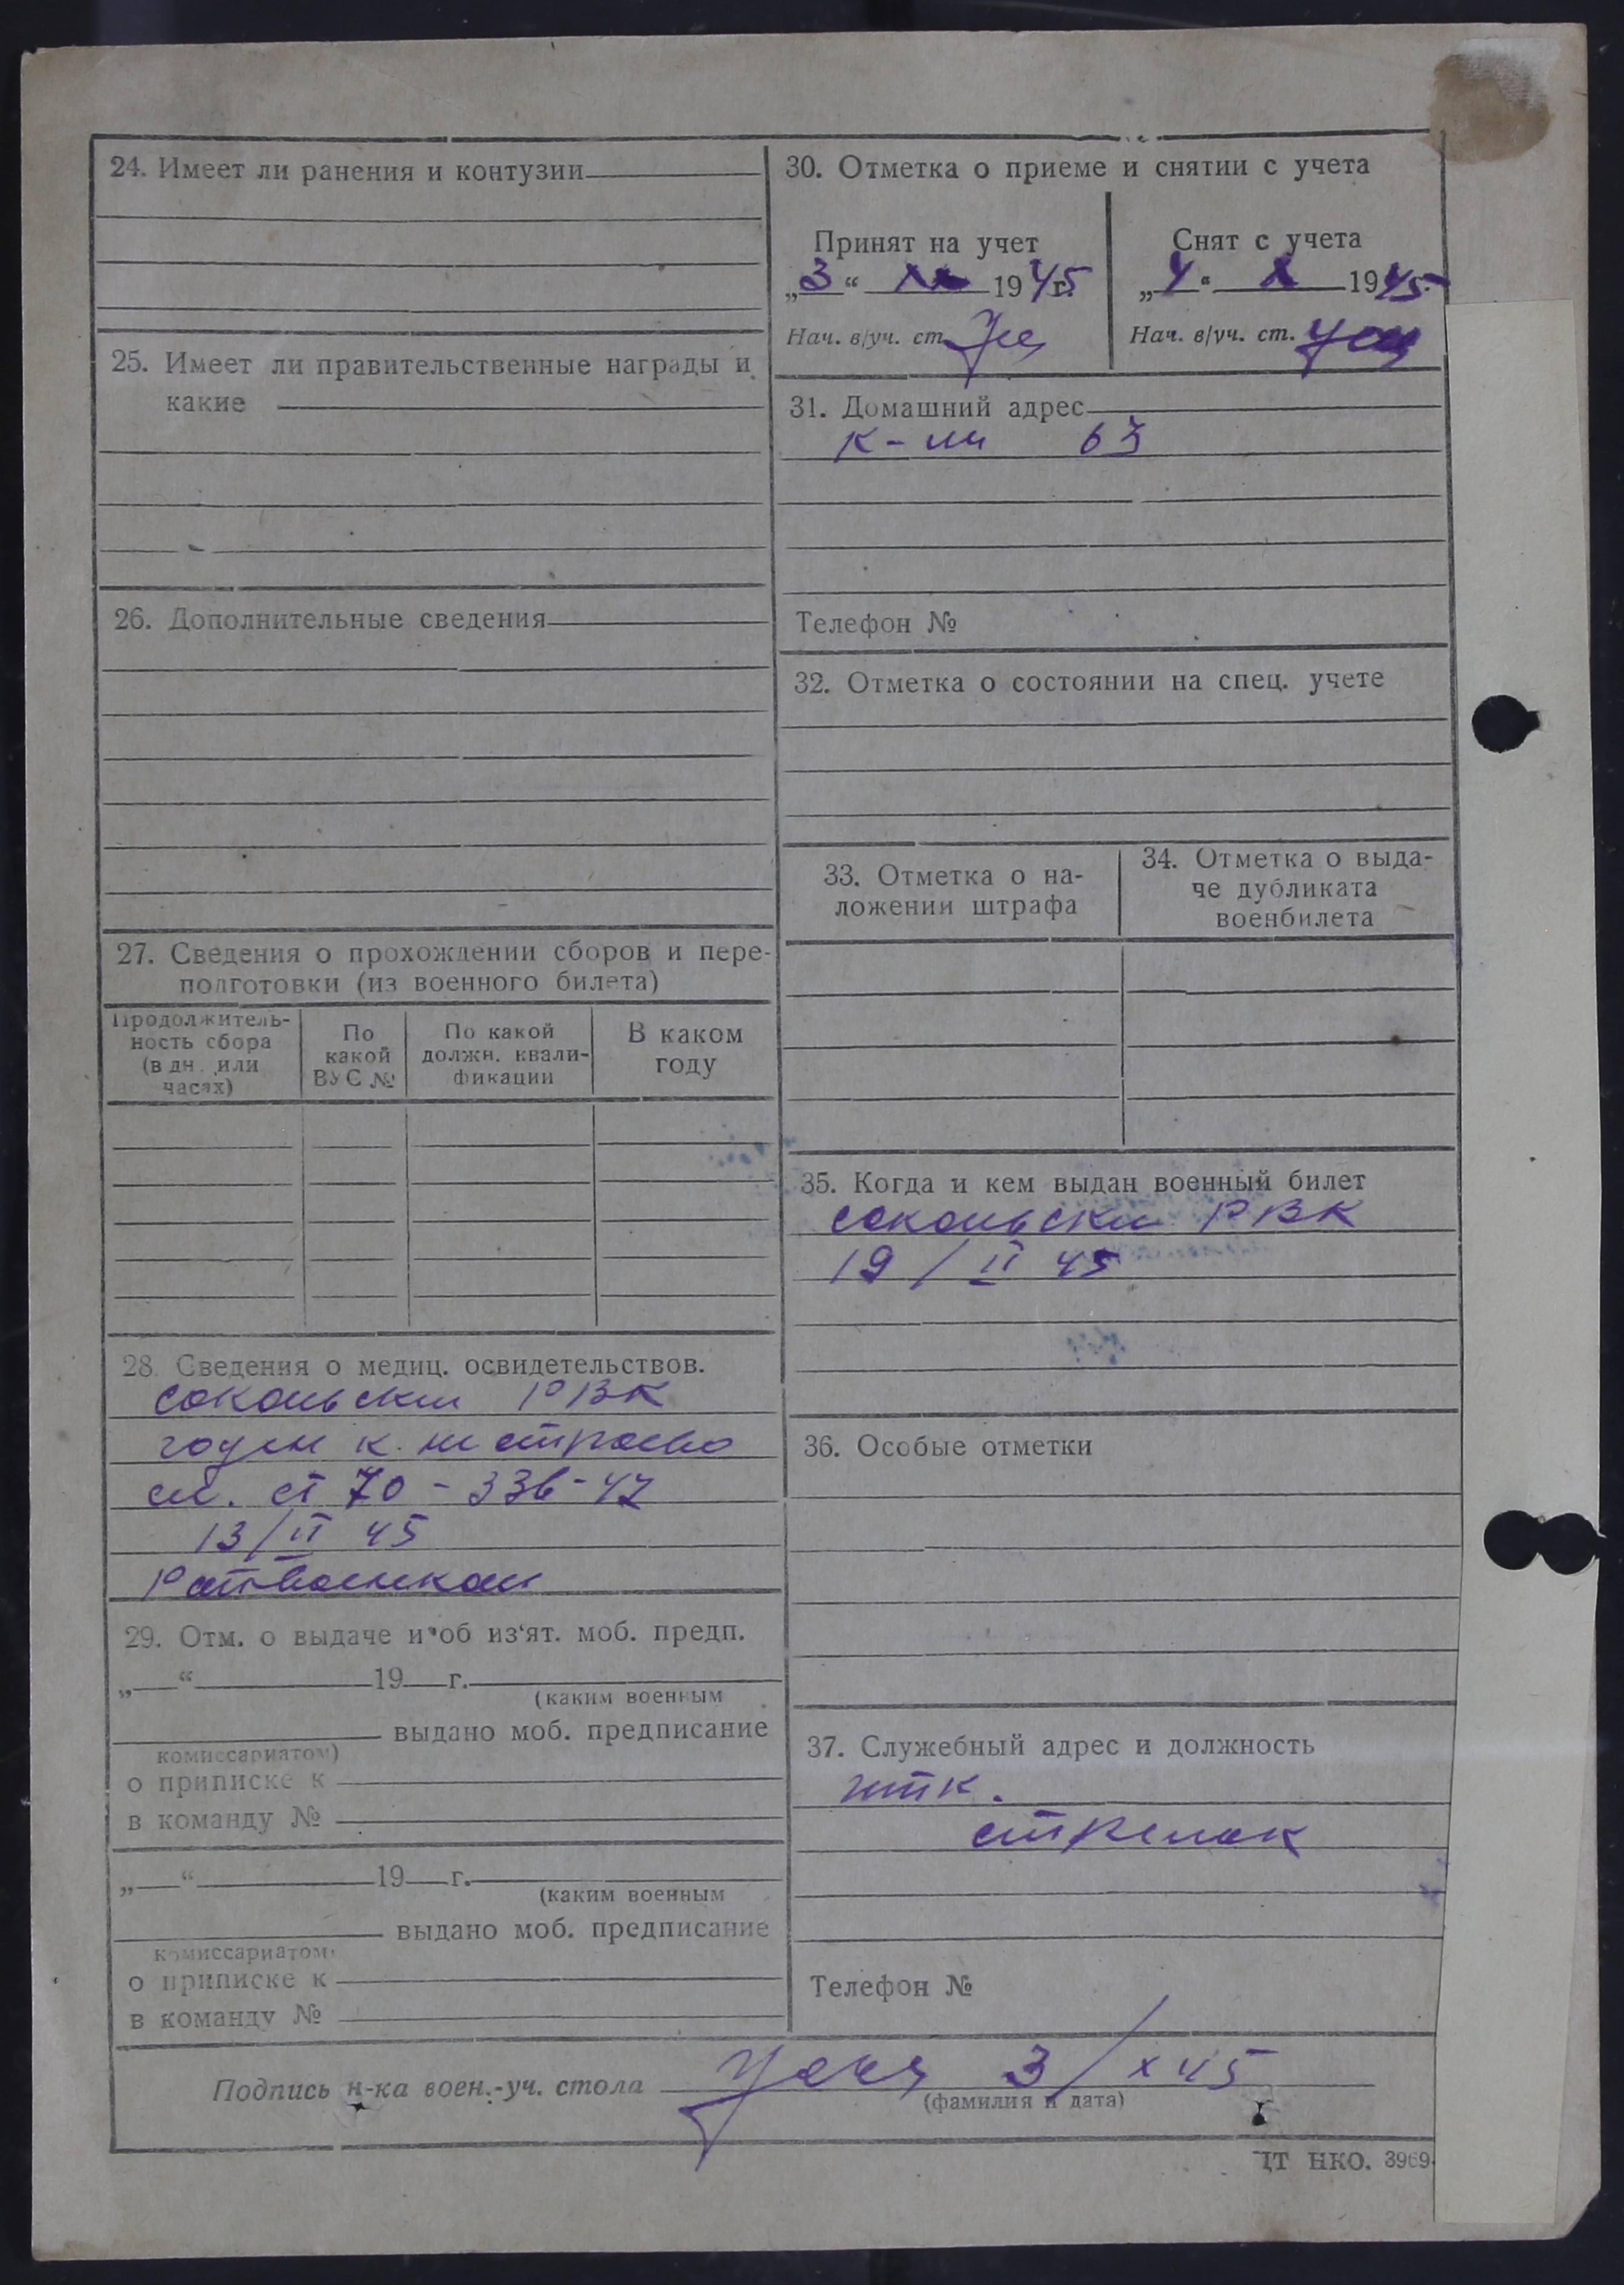 24. Имеет ли ранения и контузии
25. Имеет ли правительственные награды и
какие
26. Дополнительные сведения
27. Сведения о прохождении сборов и пере-
подготовки (из военного билета)
Продолжитель-
ность сбора
(в дн. или
часах)
По
какой
ВУС №
По какой
должн. квали-
фикации
В каком
году
28. Сведения о медиц. освидетельствов.
сокольски РВК
годен к
ст 70 - 336 - 47
13/II 45
29. Отм. о выдаче и об из‘ят. моб. предп.
„ “ 19 г.
(каким военным
выдано моб. предписание
комиссариатом)
о приписке к
в команду №
„ “ 19 г.
(каким военным
выдано моб. предписание
комиссариатом)
о приписке к
в команду №
30. Отметка о приеме и снятии с учета
Принят на учет
„3“ 1945г.
Нач. в/уч. ст.
Снят с учета
„4“ X 1945г.
Нач. в/уч. ст.
31. Домашний адрес
63
Телефон №
32. Отметка о состоянии на спец. учете
33. Отметка о на-
ложении штрафа
34. Отметка о выда-
че дубликата
военбилета
35. Когда и кем выдан военный билет
сокольски РВК
19/II 45
36. Особые отметки
37. Служебный адрес и должность
итк.
стрелок
Телефон №
Подпись н-ка воен.-уч. стола 3/X 45
(фамилия и дата)
ЦТ НКО. 3969